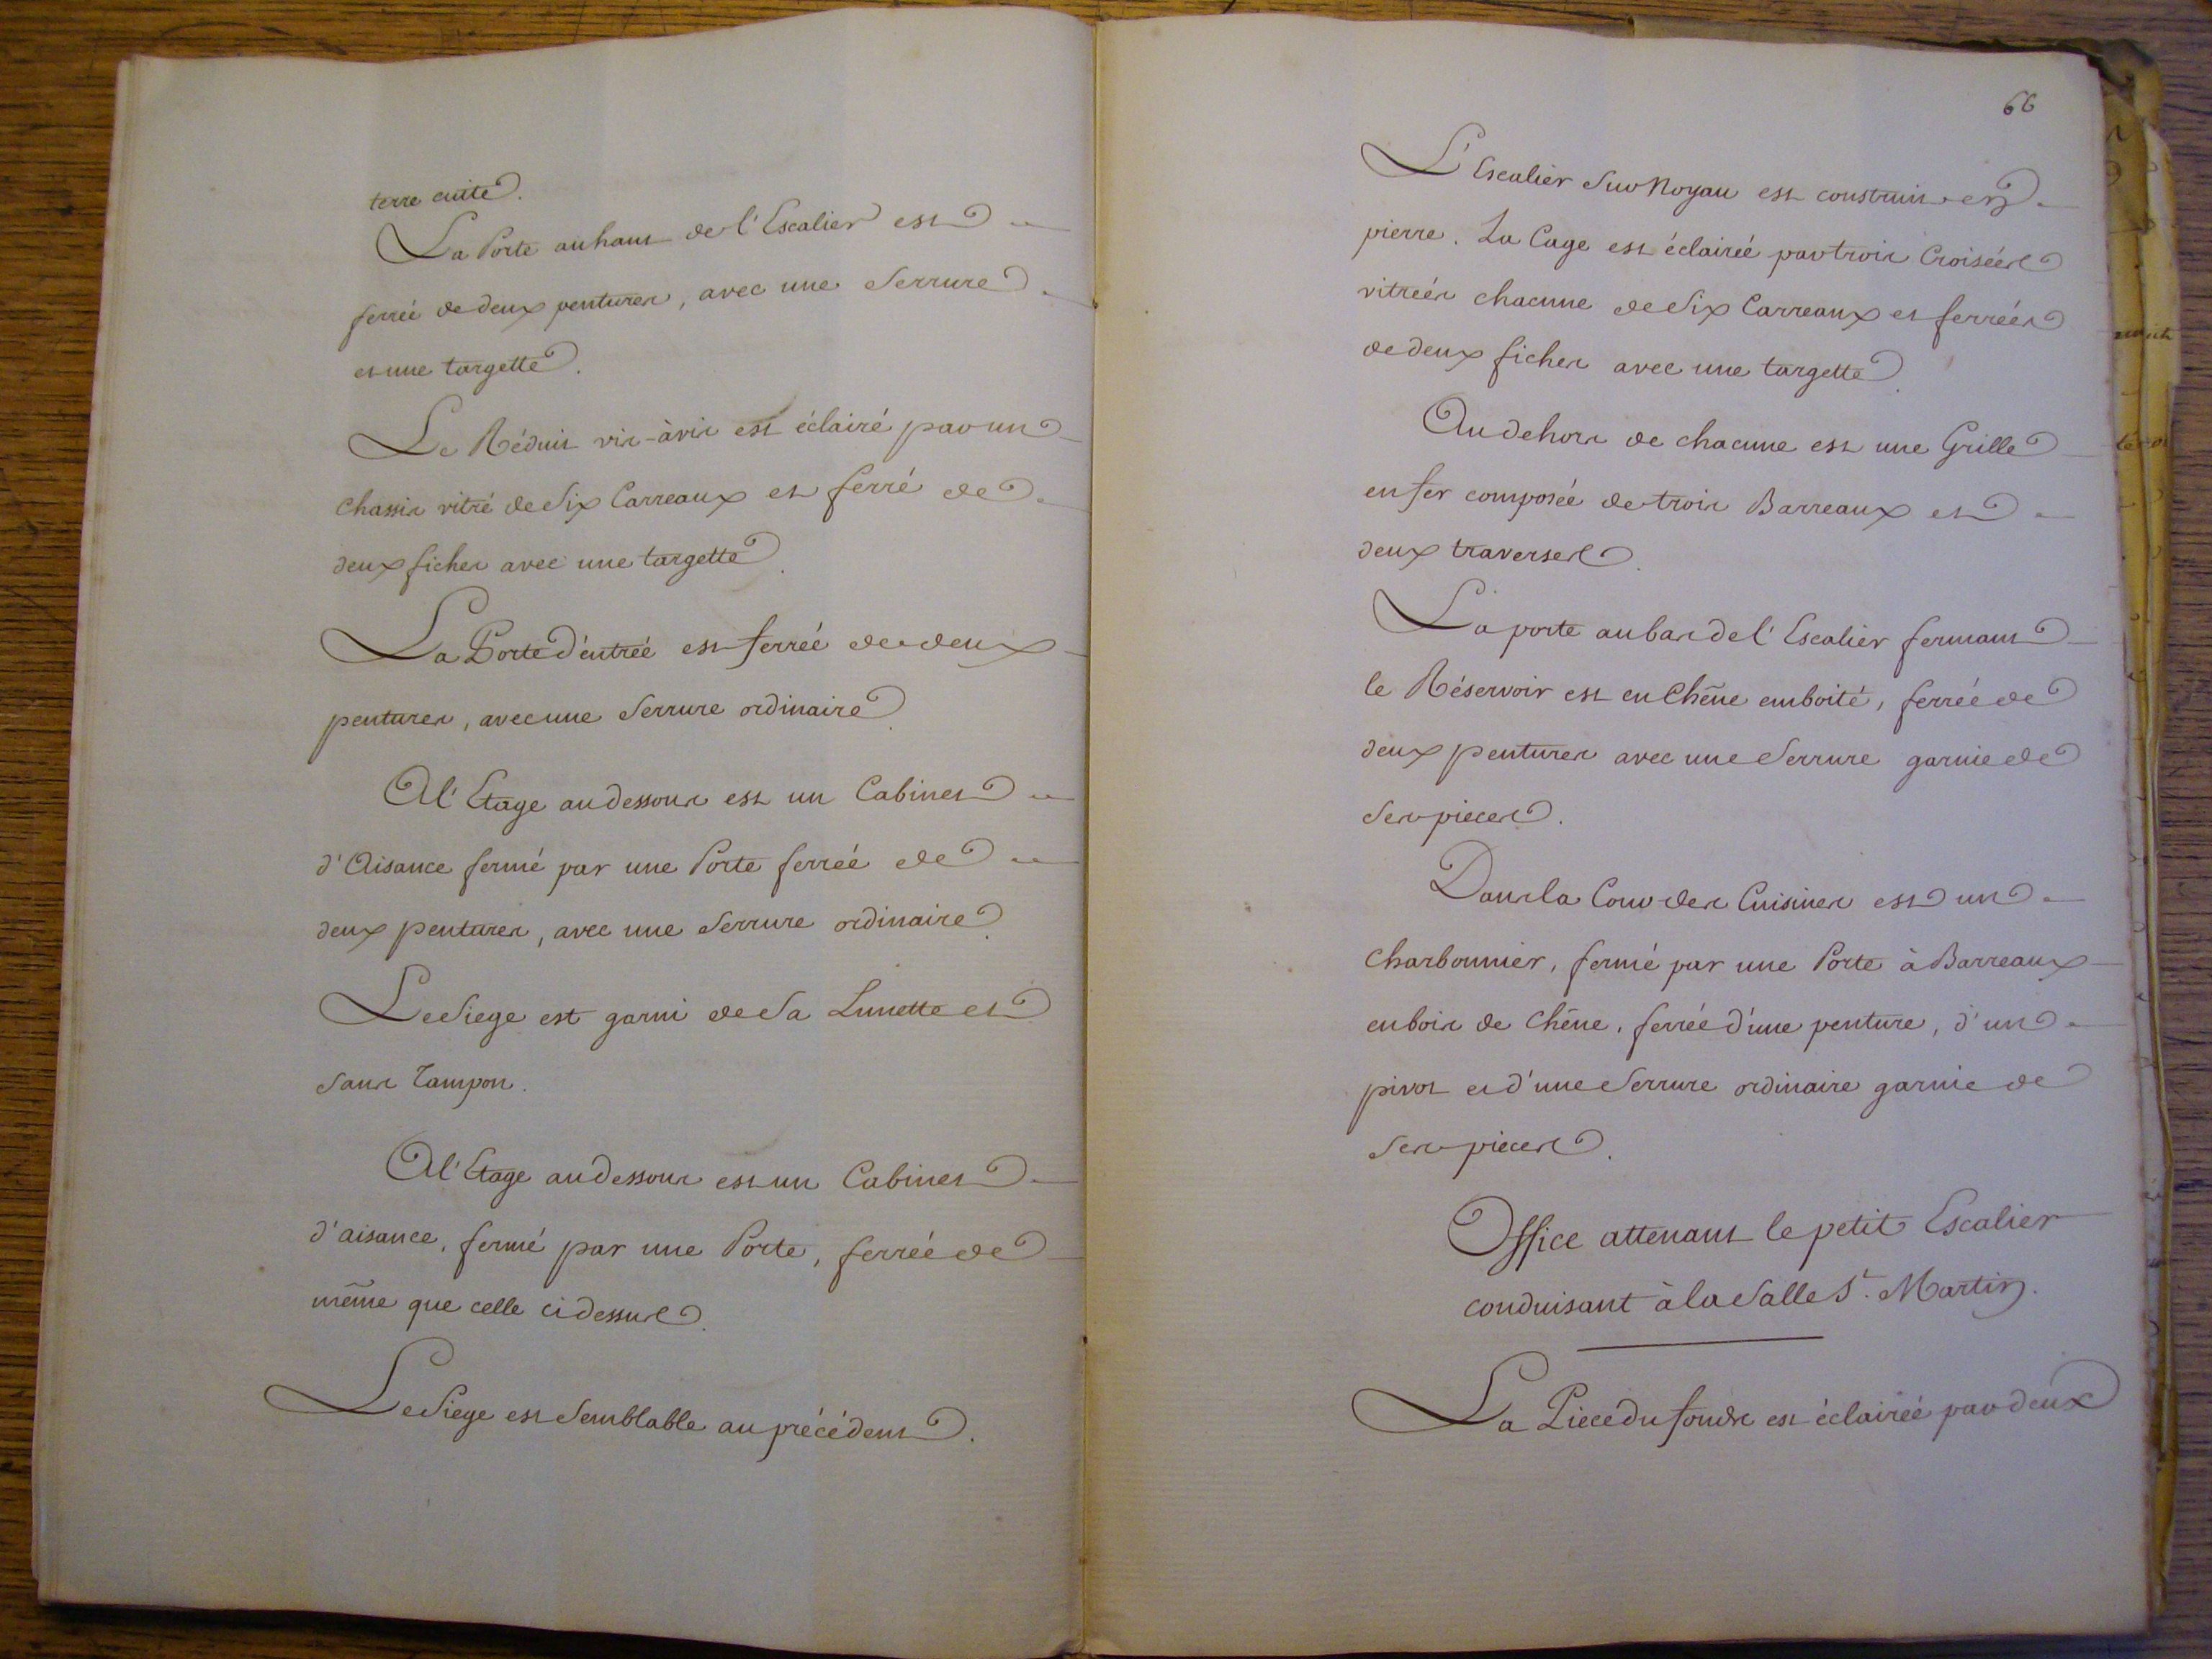 terre cuite.
La Porte au haut de l'Escalier est
ferrée de deux pentures, avec une Serrure
et une targette.
Le Réduit vis-à vis est éclairé par un
Chassis vitré de Six Carreaux et ferré de
deux fiches avec une targette.
La Porte d'entrée est ferrée de deux
pentures, avec une Serrure ordinaire.
A l'Etage au dessous est un Cabinet
d'Aisance fermé par une Porte ferrée de
deux pentures, avec une Serrure ordinaire.
Le Siege est garni de Sa Lunette et
Sans Tampon.
A l'Etage au dessous est un Cabinet
d'aisance, fermé par une Porte, ferrée de
même que celle ci dessus.
Le Siege est Semblable au précédent.
66
L'Escalier Sur Noyau est construit en
pierre. La Cage est éclairée par trois Croisées
vitrées chacune de Six Carreaux et ferrées
de deux fiches avec une targette.
Au dehors de chacune est une Grille
en fer composée de trois Barreaux et
deux traverses.
La porte au bas de l'Escalier fermant
le Réservoir est en Chêne emboité, ferrée de
deux pentures avec une Serrure garnie de
Ses pieces.
Dans la Cour des Cuisines est un
Charbonnier, fermé par une Porte à Barreaux
en bois de Chêne, ferrée d'une penture, d'un
pivot et d'une Serrure ordinaire garnie de
Ses pieces.
Office attenant le petit Escalier
conduisant à la Salle St. Martin.
La Piece du fonds est éclairée par deux